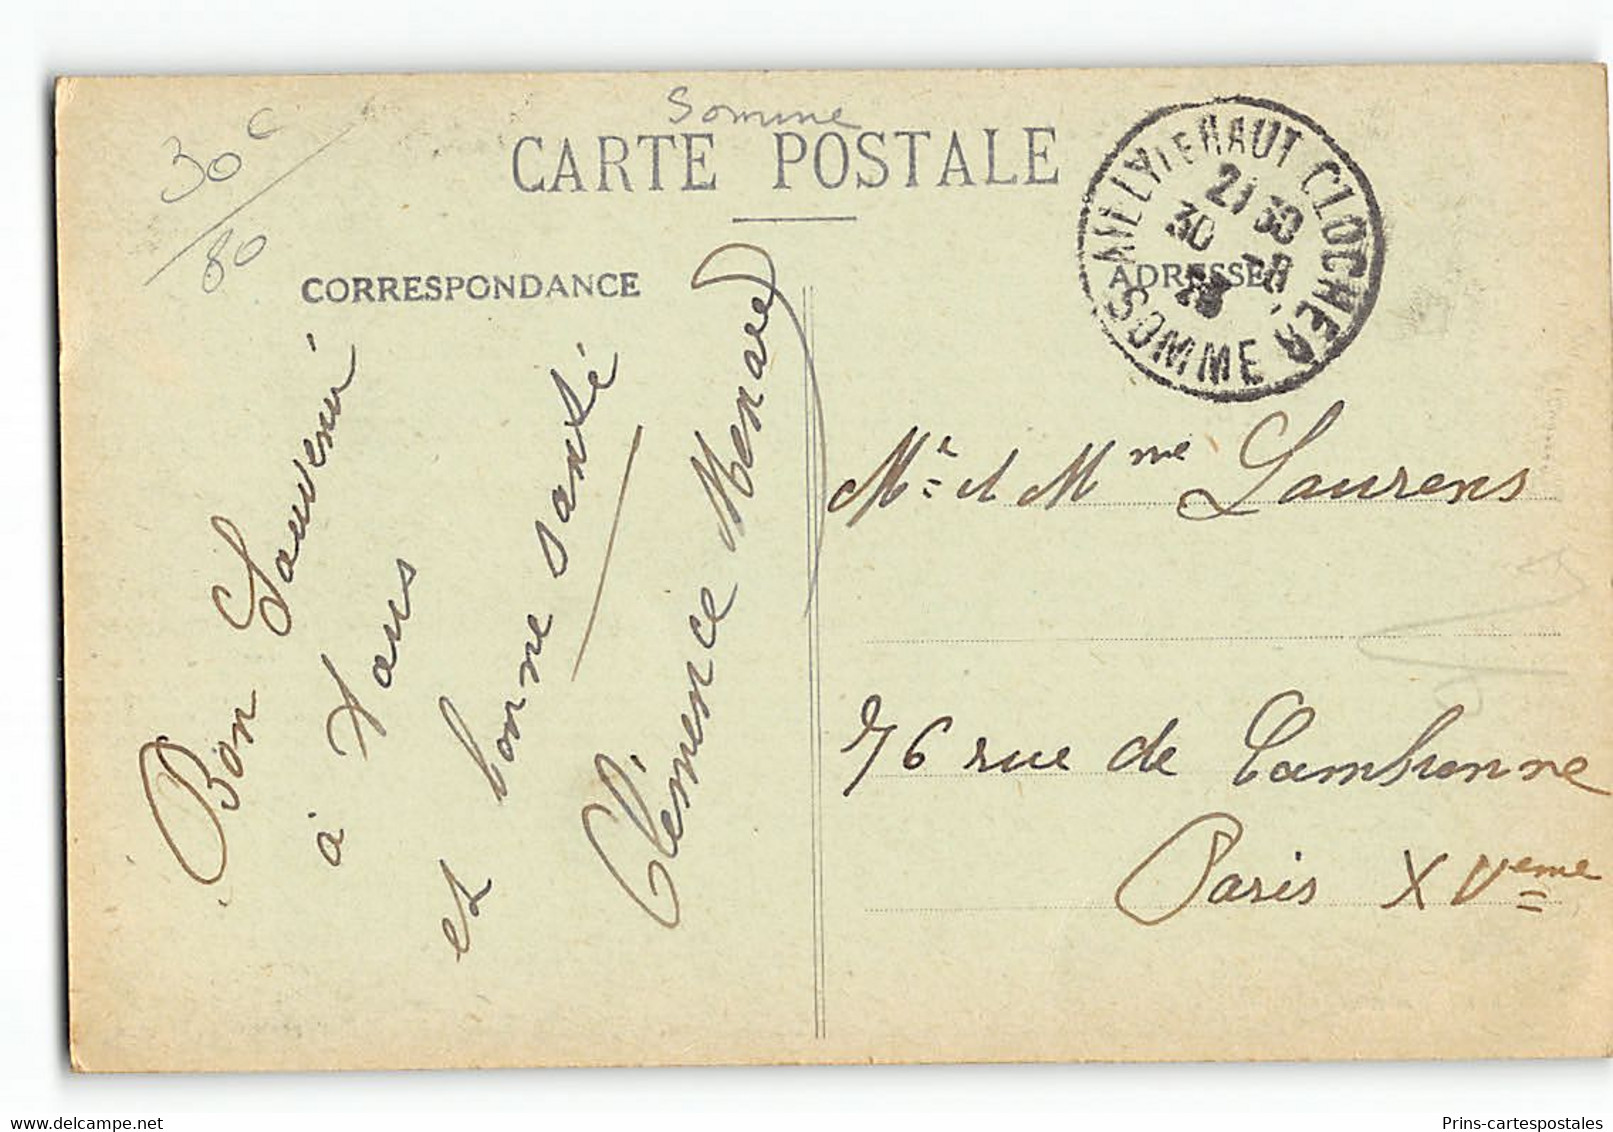 Somme
CARTE POSTALE
30c
80
CORRESPONDANCE
ADRESSE
AILLY LE HAUT CLOCHER
21 30
30 -8
SOMME
Bon Souvenir
à tous
et bonne santé
Clémence Menare
Mr et Mme Laurens
76 rue de Cambronne
Paris XVeme
www.delcampe.net
Prins-cartespostales